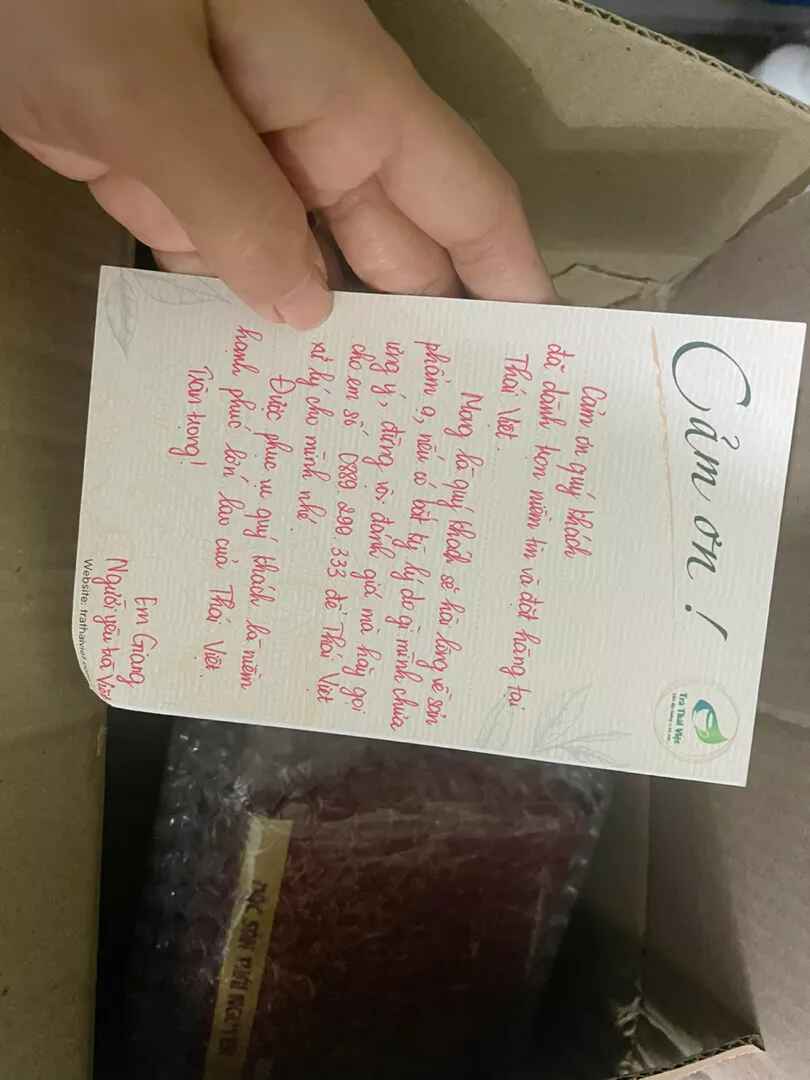 Cảm ơn!
Trà Thái Việt
Cảm ơn quý khách
đã dành trọn niềm tin và đặt hàng tại
Thái Việt.
Mong là quý khách sẽ hài lòng về sản
phẩm ạ, nếu có bất kỳ lý do gì mình chưa
ưng ý, đừng vội đánh giá mà hãy gọi
cho em số 0889.290.333 để Thái Việt
xử lý cho mình nhé.
Được phục vụ quý khách là niềm
hạnh phúc lớn lao của Thái Việt.
Trân trọng!
Em Giang
Người yêu trà Việt
Website: trathaiviet
ĐẶC SẢN THÁI NGUYÊN